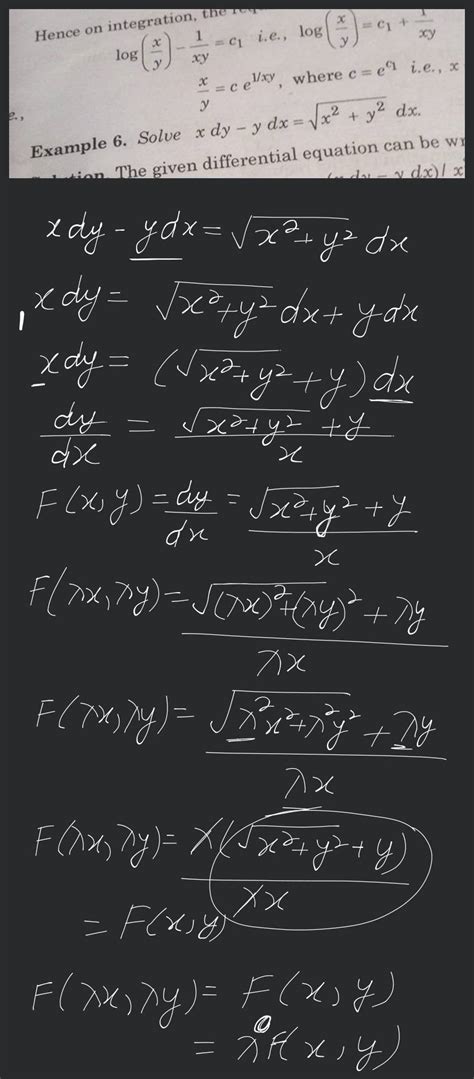 Hence on integration, the
log(x/y) - 1/xy = c₁ i.e., log(x/y) = c₁ + 1/xy
x/y = c e^{1/xy}, where c = e^{c₁} i.e., x
e.,
Example 6. Solve x dy – y dx = √(x² + y²) dx.
The given differential equation can be
– y dx)/ x
x dy - y dx = √(x²+y²) dx
x dy = √(x²+y²) dx + y dx
x dy = (√(x²+y²) + y) dx
dy/dx = (√(x²+y²) + y)/x
F(x,y) = dy/dx = (√(x²+y²) + y)/x
F(λx,λy) = (√((λx)²+(λy)²) + λy)/λx
F(λx,λy) = (√(λ²x²+λ²y²) + λy)/λx
F(λx,λy) = λ(√(x²+y²) + y)/λx
= F(x,y)
F(λx,λy) = F(x,y)
= λ⁰F(x,y)